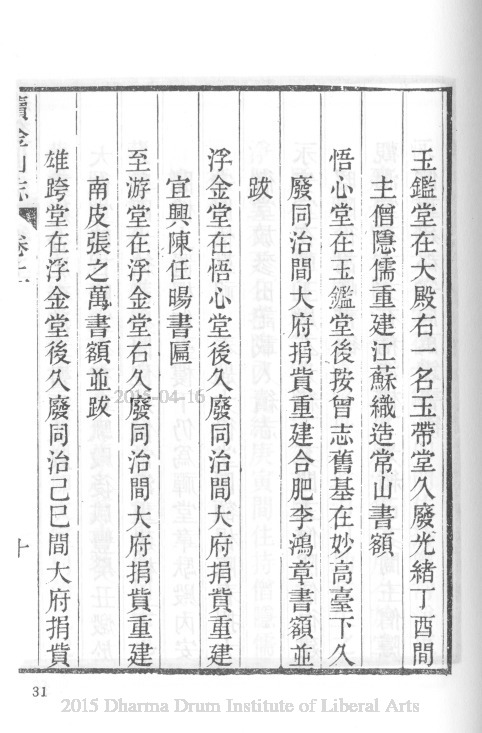 玉鑑堂在大殿右一名玉帶堂久廢光緒丁酉間
主僧隱儒重建江蘇織造常山書額
悟心堂在玉鑑堂後按曾志舊基在妙高臺下久
廢同治間大府捐貲重建合肥李鴻章書額並
跋
浮金堂在悟心堂後久廢同治間大府捐貲重建
宜興陳任暘書匾
至游堂在浮金堂右久廢同治間大府捐貲重建
南皮張之萬書額並跋
雄跨堂在浮金堂後久廢同治己巳間大府捐貲
續金山志 卷上
十
2015-04-16
31
2015 Dharma Drum Institute of Liberal Arts